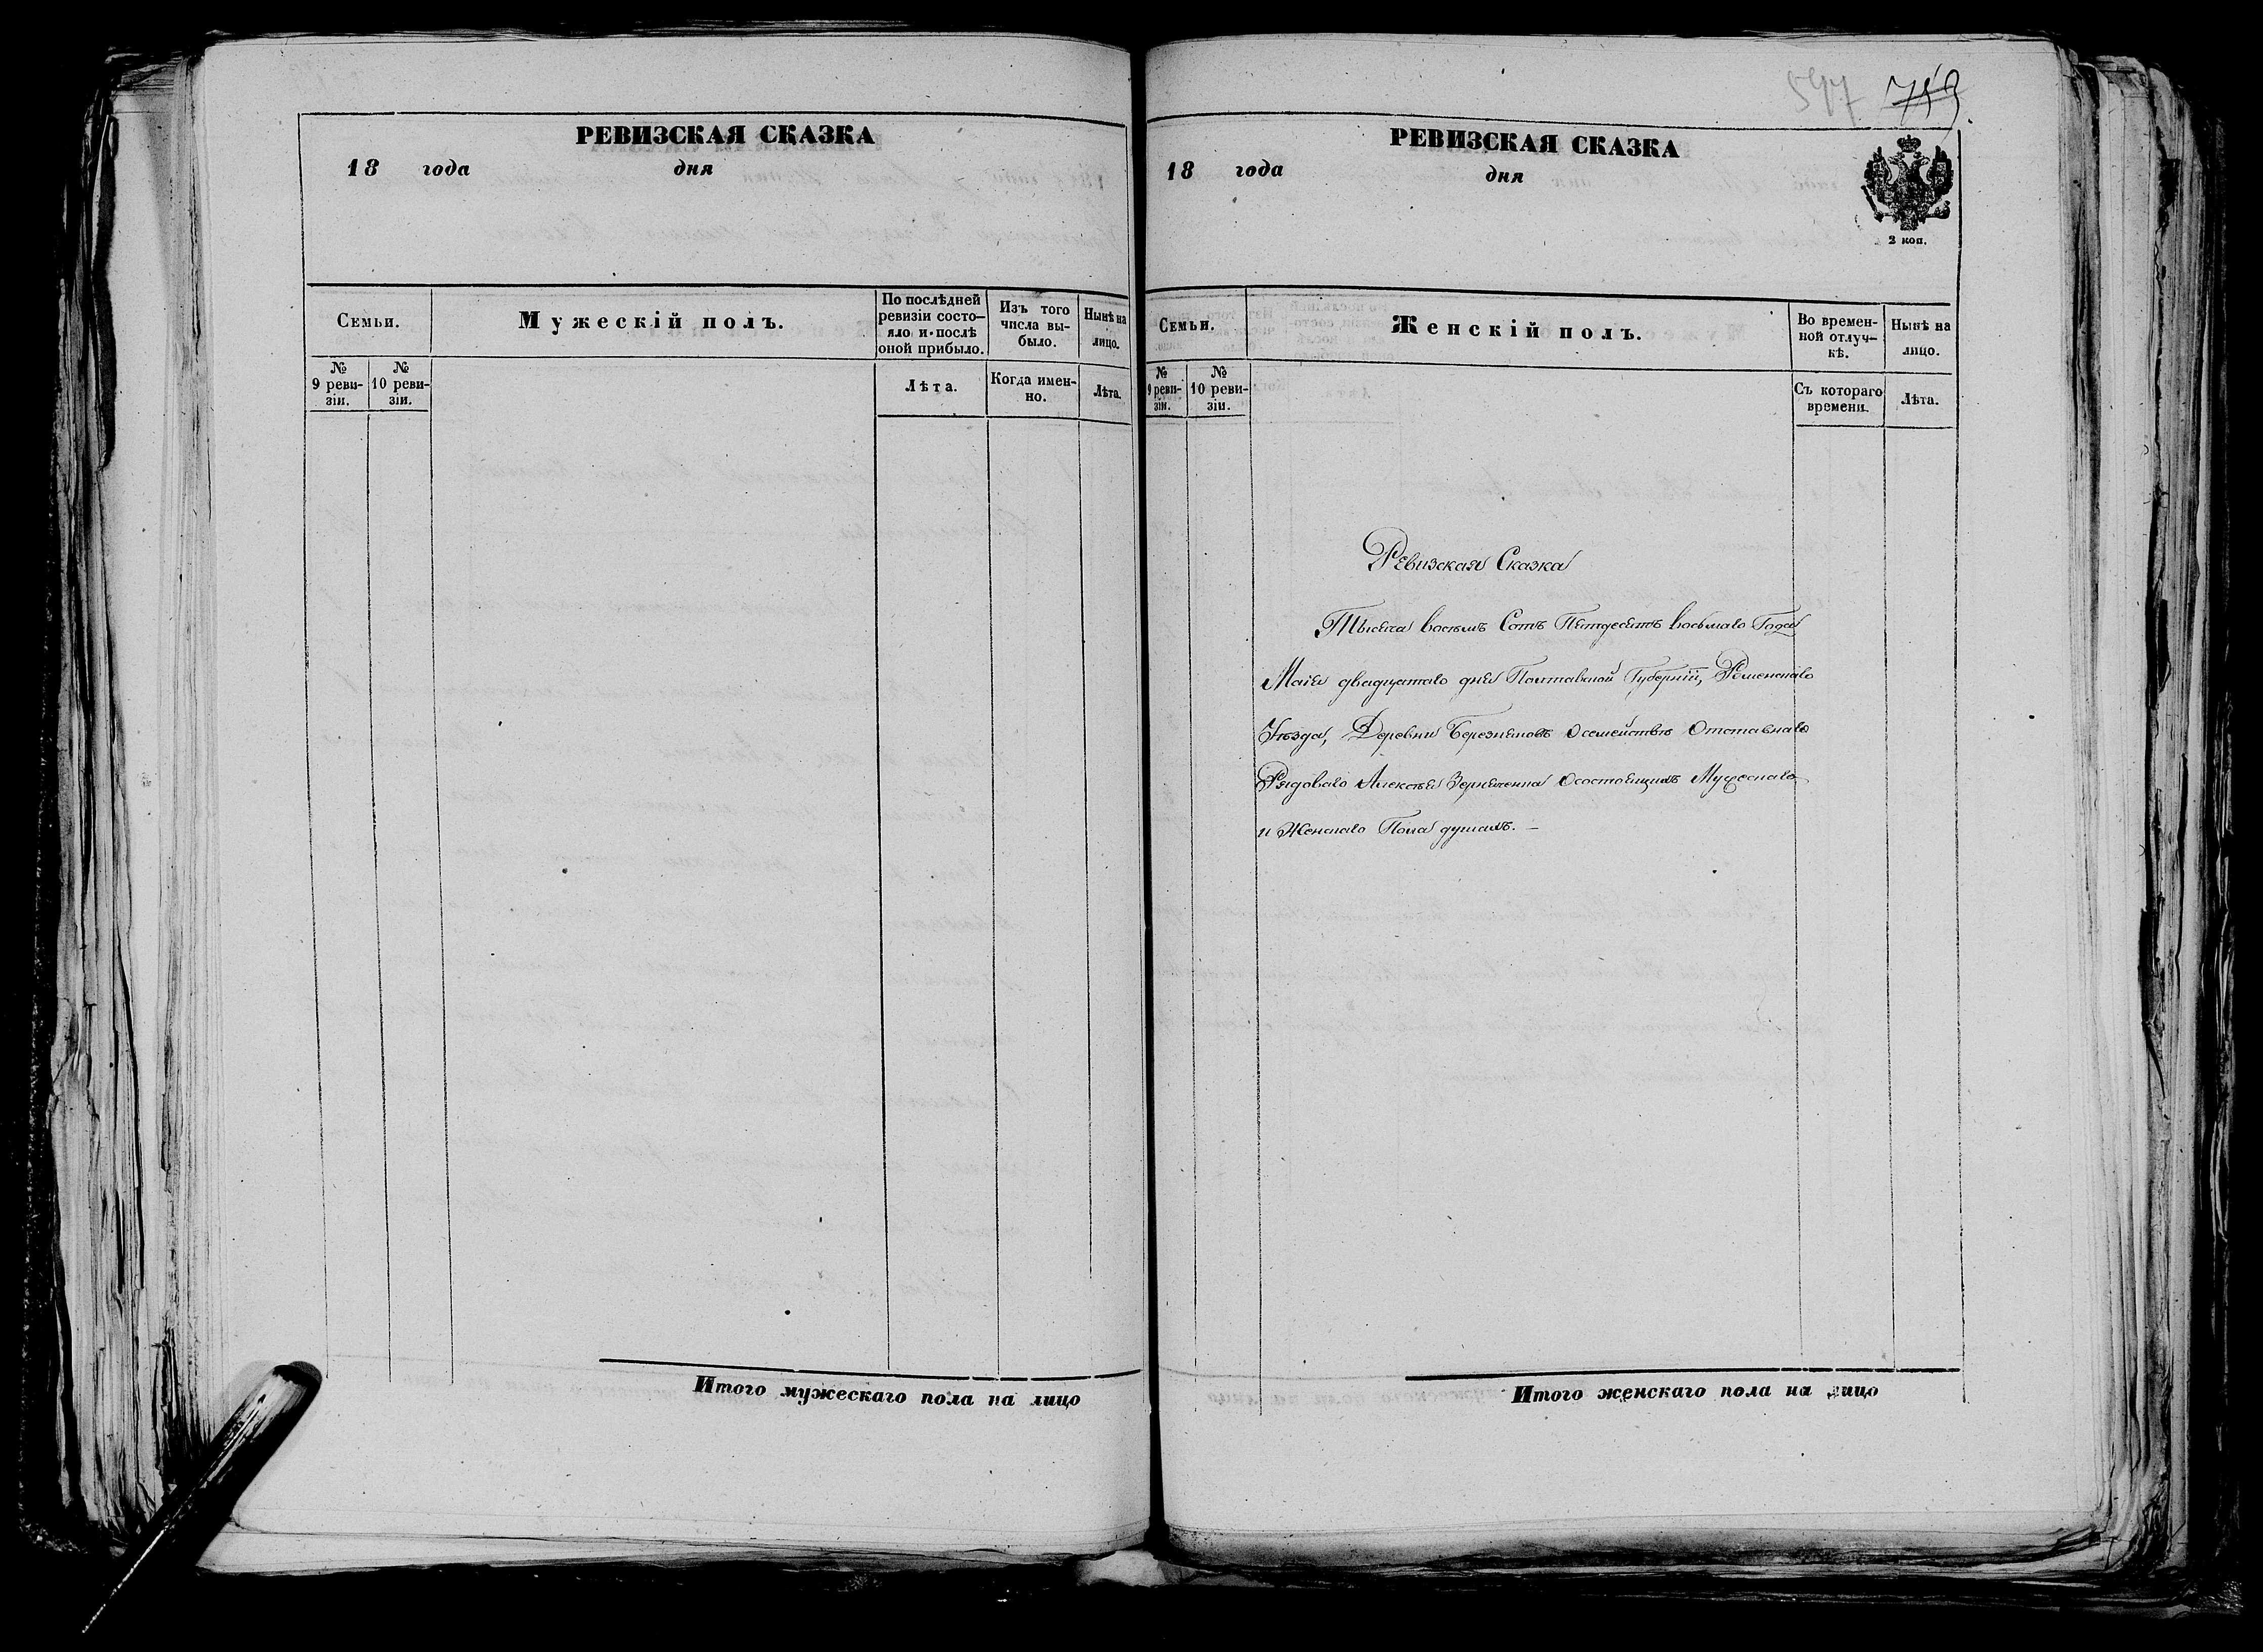 РЕВИЗСКАЯ СКАЗКА
18 года дня
Семьи.
Мужескій полъ.
По послѣдней ревизіи состояло и послѣ оной прибыло.
Изъ того числа выбыло.
Нынѣ на лицо.
№ 9 ревизіи.
№ 10 ревизіи.
Лѣта.
Когда именно.
Лѣта.
Итого мужескаго пола на лицо
597 719
РЕВИЗСКАЯ СКАЗКА
18 года дня
2 коп.
Семьи.
Женскій полъ.
Во временной отлучкѣ.
Нынѣ на лицо.
№ 9 ревизіи.
№ 10 ревизіи.
Съ котораго времени.
Лѣта.
Ревизская Сказка
Тысяча восемъ Сотъ Пятдесятъ восьмаго Года
Маія двадцатаго дня Полтавской Губерніи, Роменскаго
Уѣзда, Деревни Березняковъ Осемействѣ Отставнаго
Рядоваго Алексѣя Зерняченка Осостоящихъ Мужескаго
и Женскаго Пола душахъ. —
Итого женскаго пола на лицо